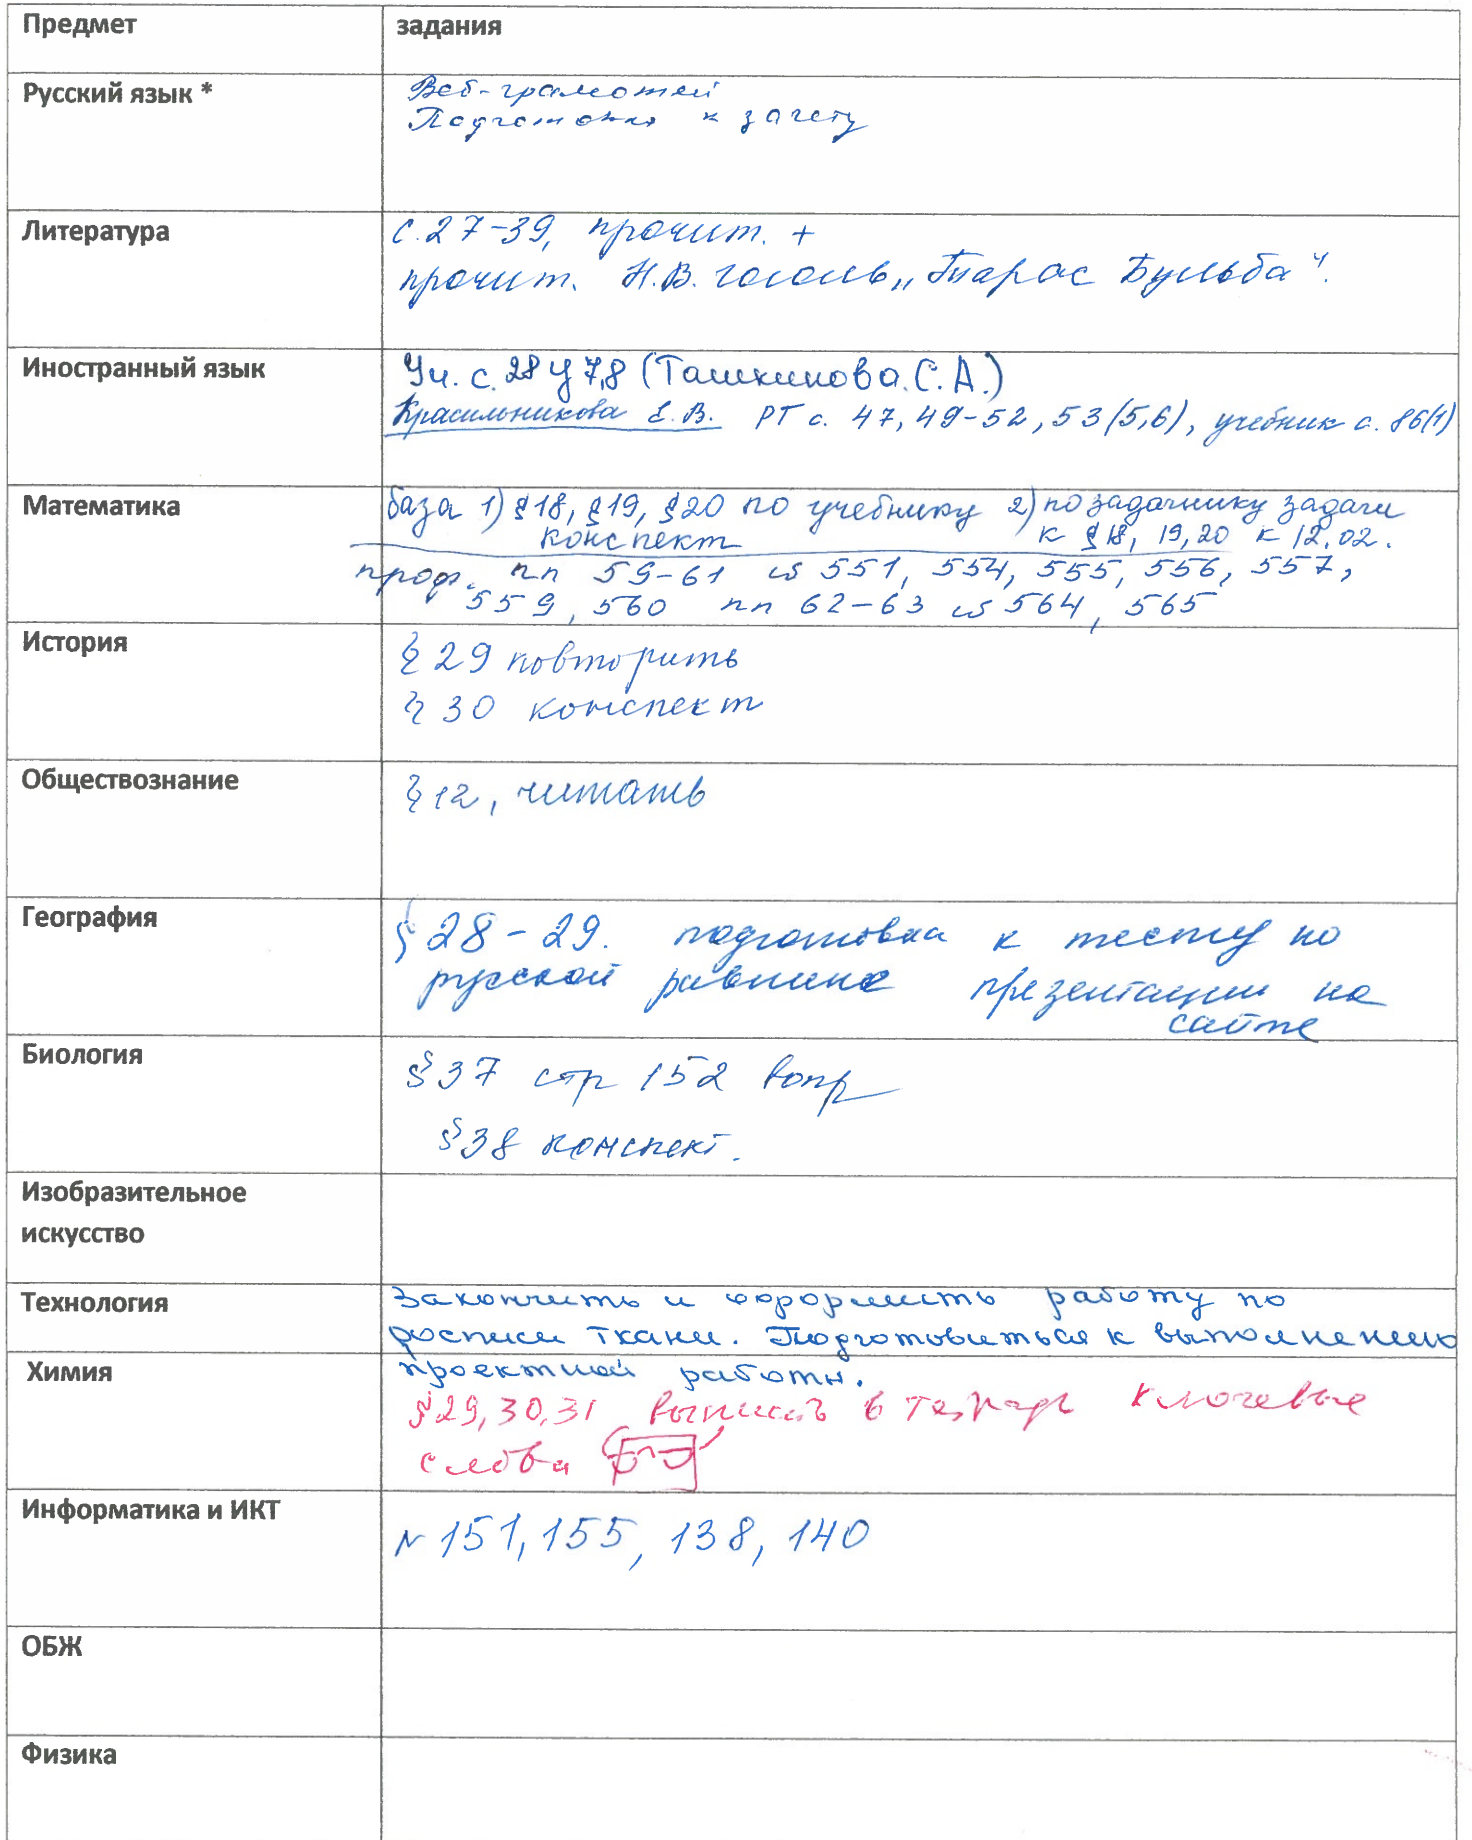 Предмет задания
Русский язык * Веб-грамотей
Подготовка к зачету
Литература с. 27-39, прочит. +
прочит. Н.В. Гоголь „Тарас Бульба“.
Иностранный язык Уч. с. 28 у 7,8 (Ташкинова. С. А.)
Красильникова Е. В. РТ с. 47, 49-52, 53 (5,6), учебник с. 86(1)
Математика база 1) §18, §19, §20 по учебнику 2) по задачнику задачи
конспект к § 18, 19, 20 к 12.02.
проф. пп 59-61 № 551, 554, 555, 556, 557,
559, 560 пп 62-63 № 564, 565
История § 29 повторить
§ 30 конспект
Обществознание § 12, читать
География § 28-29. подготовка к тесту по
русской равнине презентации на
сайте
Биология § 37 стр 152 вопр
§ 38 конспект.
Изобразительное
искусство
Технология Закончить и оформить работу по
росписи ткани. Подготовиться к выполнению
проектной работы.
Химия §29, 30, 31 выписать в тетрадь ключевые
слова
Информатика и ИКТ № 151, 155, 138, 140
ОБЖ
Физика